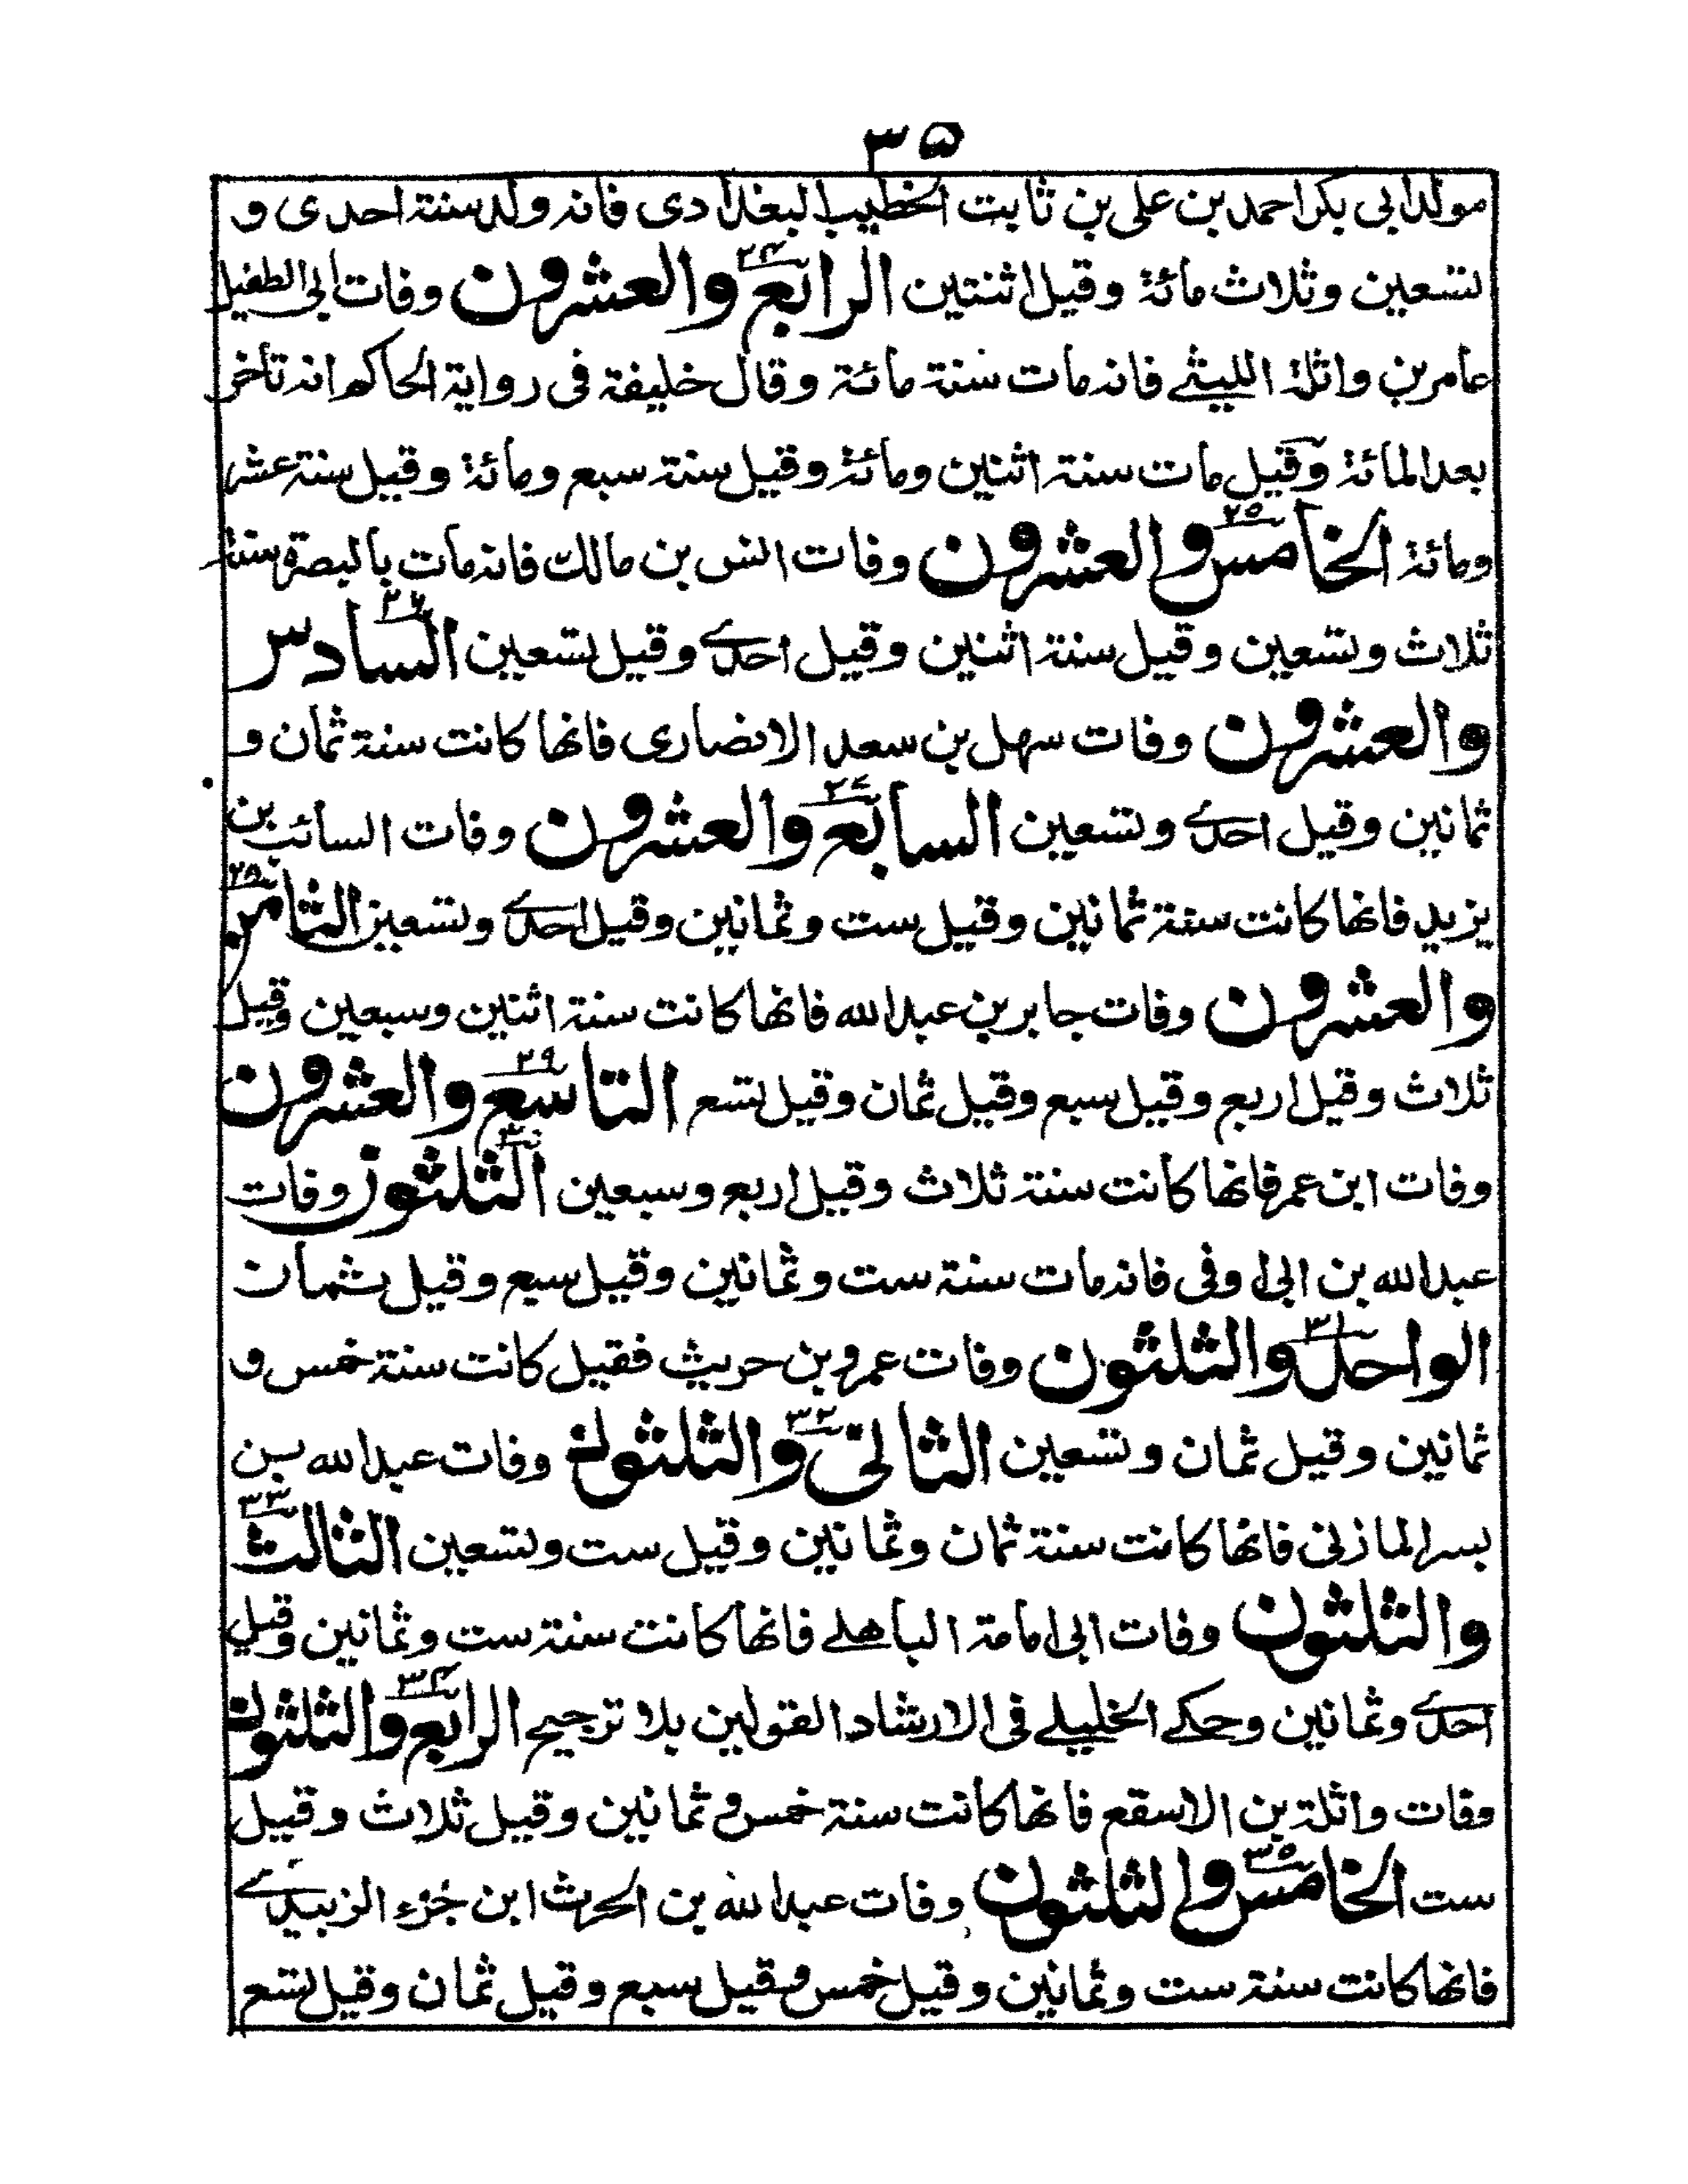 ٣٥
مولد ابی بکر احمد بن علی بن ثابت الخطیب البغدادی فانه ولد سنة احدی و
تسعین وثلاث مائة وقیل اثنتین الرابع والعشرون ٢٤ وفات ابی الطفیل
عامر بن واثلة اللیثے فانه مات سنة مائة وقال خلیفة فی روایة الحاکم انه تأخر
بعد المائة وقیل مات سنة اثنین ومائة وقیل سنة سبع ومائة وقیل سنة عشر
ومائة الخامس والعشرون ٢٥ وفات انس بن مالك فانه مات بالبصرة سنة
ثلاث وتسعین وقیل سنة اثنین وقیل احدے وقیل تسعین السادس ٢٦
والعشرون وفات سهل بن سعد الانصاری فانها کانت سنة ثمان و
ثمانین وقیل احدے وتسعین السابع والعشرون ٢٧ وفات السائب بن
یزید فانها کانت سنة ثمانین وقیل ست وثمانین وقیل احدے وتسعین الثامن ٢٨
والعشرون وفات جابر بن عبد الله فانها کانت سنة اثنین وسبعین وقیل
ثلاث وقیل اربع وقیل سبع وقیل ثمان وقیل تسع التاسع والعشرون ٢٩
وفات ابن عمر فانها کانت سنة ثلاث وقیل اربع وسبعین الثلثون ٣٠ وفات
عبد الله بن ابی اوفی فانه مات سنة ست وثمانین وقیل سبع وقیل ثمان
الواحد والثلثون ٣١ وفات عمرو بن حریث فقیل کانت سنة خمس و
ثمانین وقیل ثمان وتسعین الثانی والثلثون ٣٢ وفات عبد الله بن
بسر المازنی فانها کانت سنة ثمان وثمانین وقیل ست وتسعین الثالث ٣٣
والثلثون وفات ابی امامة الباهلے فانها کانت سنة ست وثمانین وقیل
احدے وثمانین وحکے الخلیلے فی الارشاد القولین بلا ترجیح الرابع والثلثون ٣٤
وفات واثلة بن الاسقع فانها کانت سنة خمس و ثمانین وقیل ثلاث وقیل
ست الخامس والثلثون ٣٥ وفات عبد الله بن الحرث ابن جزء الزبیدے
فانها کانت سنة ست وثمانین وقیل خمس وقیل سبع وقیل ثمان وقیل تسع